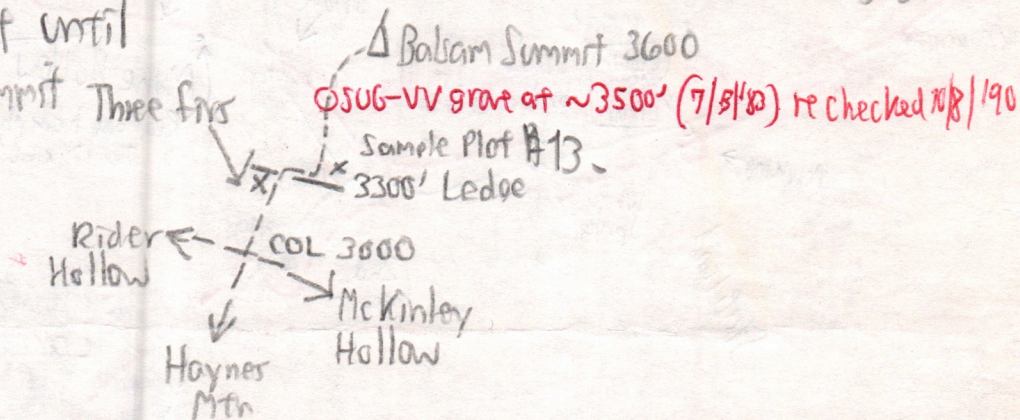 until
Balsam Summit 3600
Three firs
SUG-VV grove at ~3500' (7/5/'83) rechecked 10/8/'90
Sample Plot #13.
3300' Ledge
Rider
Hollow
COL 3000
McKinley
Hollow
Haynes
Mtn